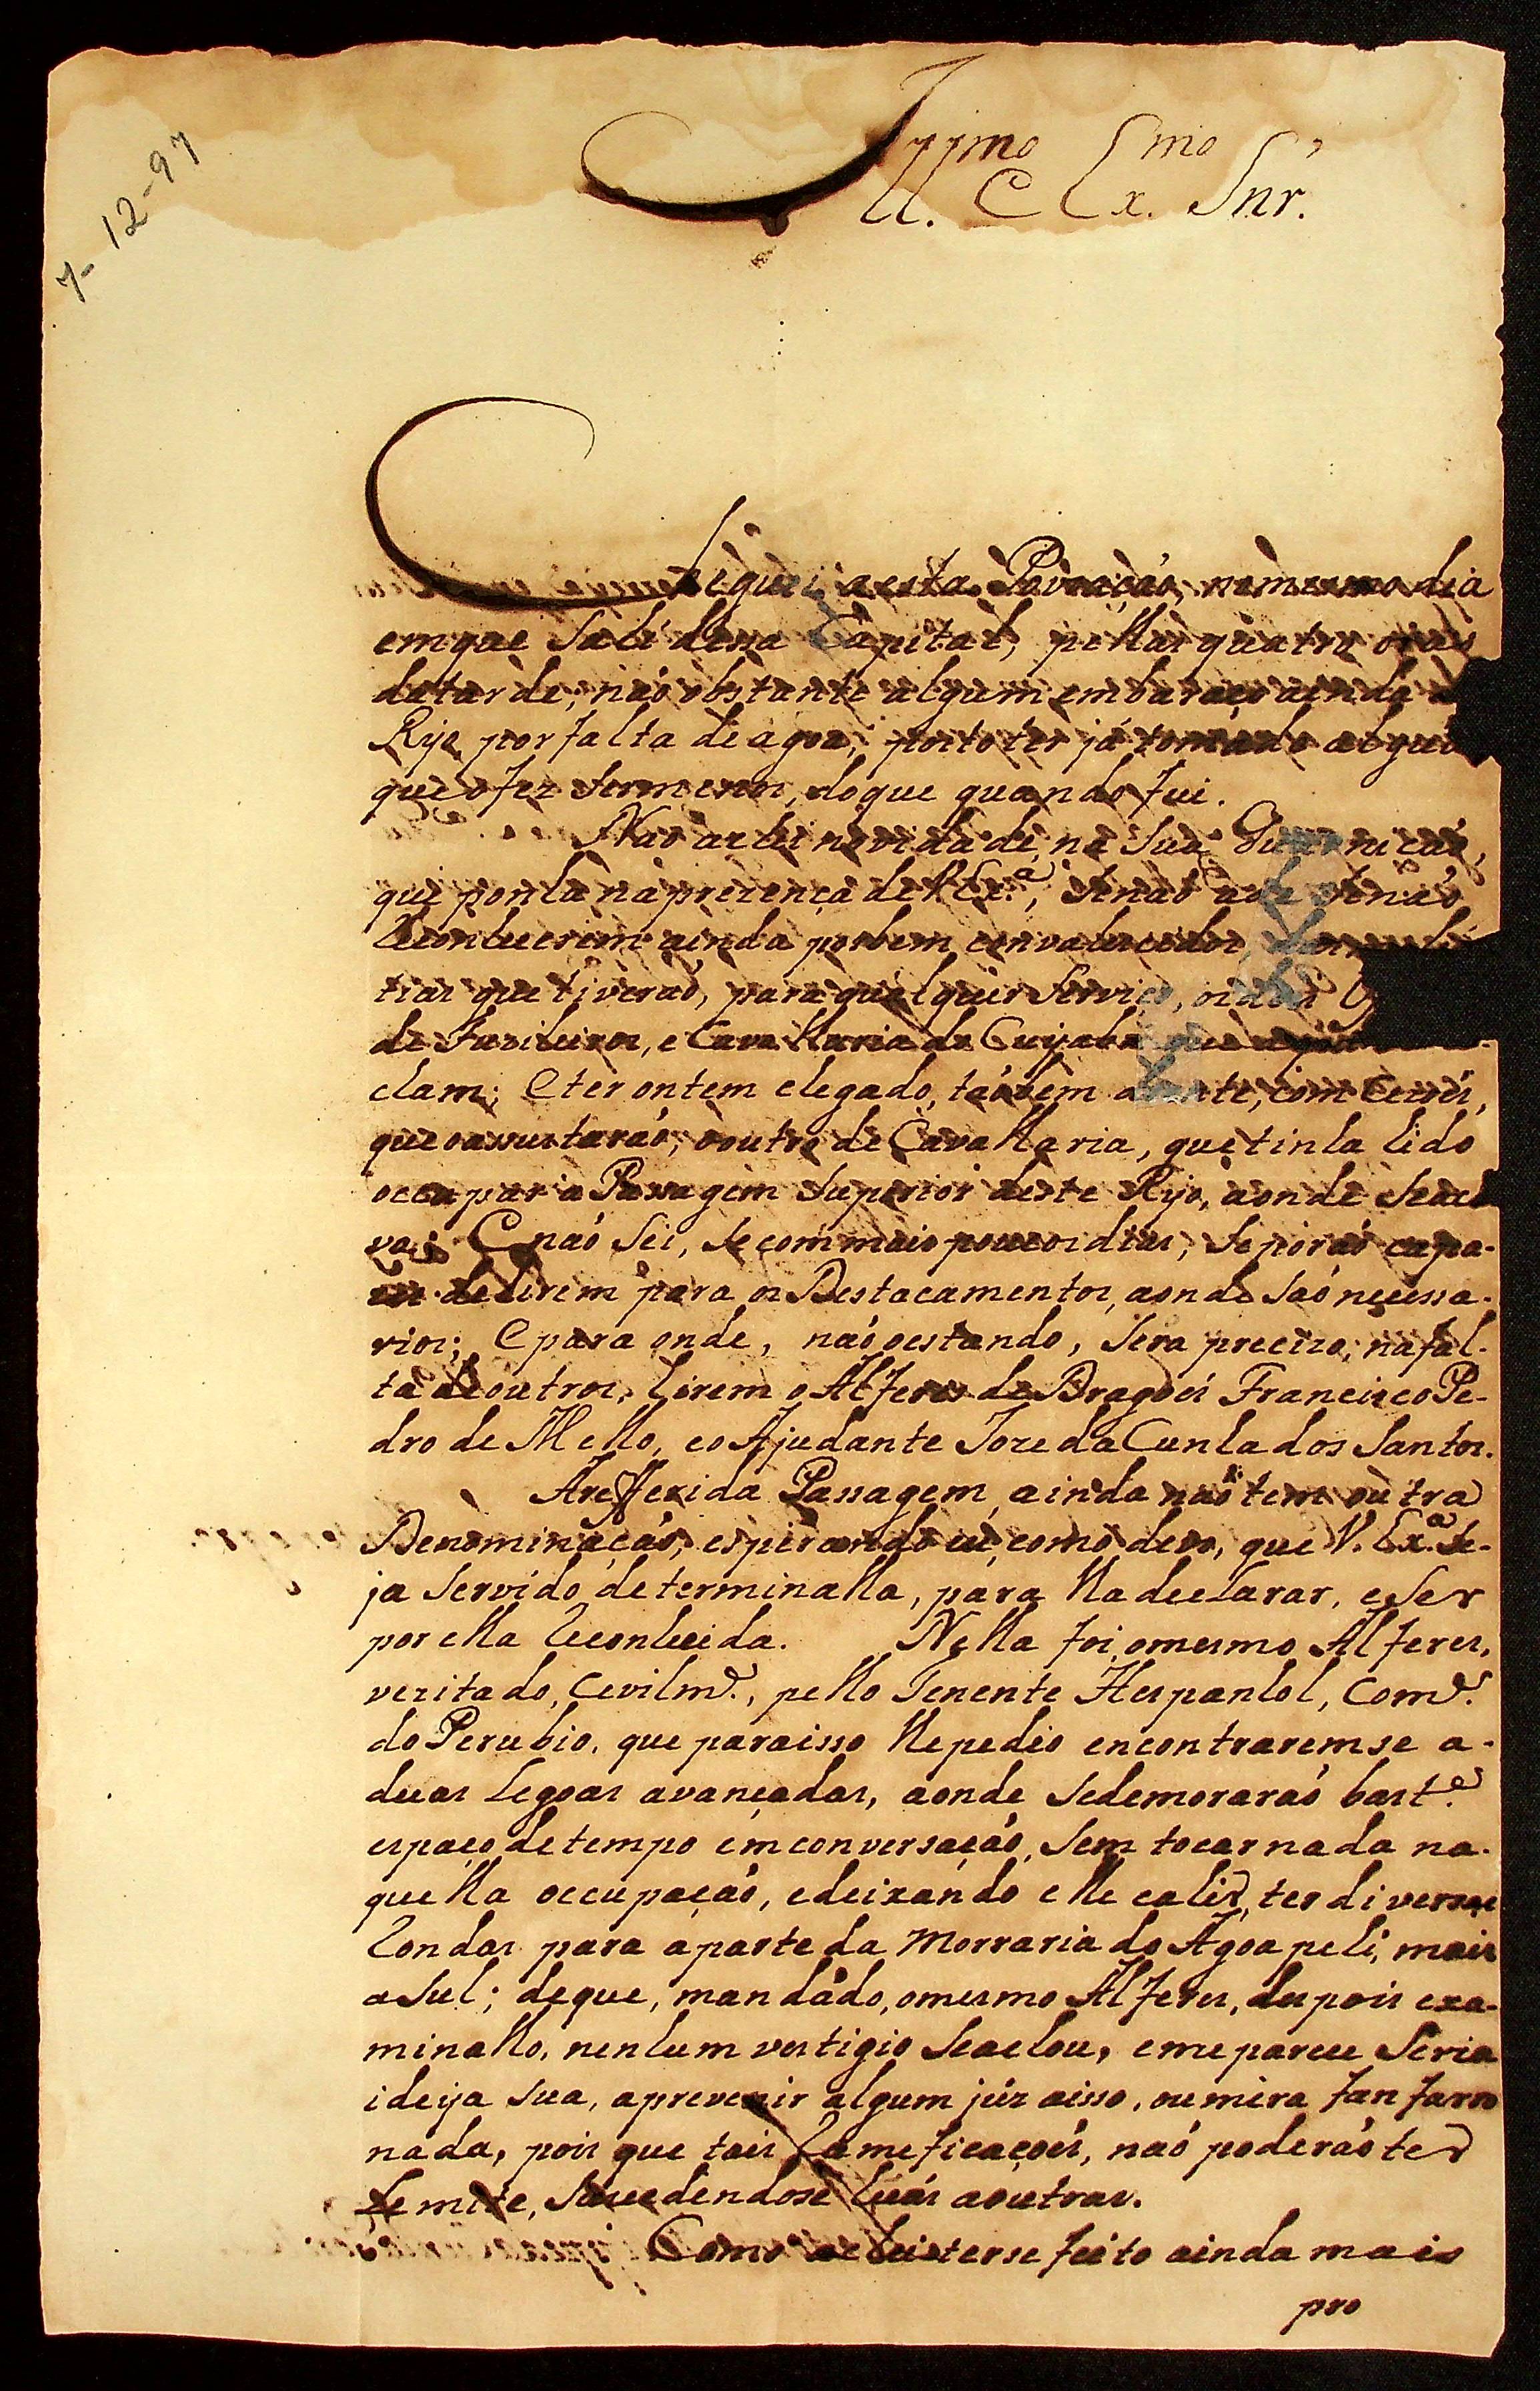 7-12-97
Illmo e Exmo Snr.
Cheguei a esta Povoação, no mesmo dia
em que Sahi dessa Capital, pellas quatro oras
da tarde, não obstante algum embaraço ainda
Rijo por falta de agoa, posto ter já tomado
que o fez ser menor, do que quando fui.
Não achei novidade, na Sua Guarnição,
que ponha na prezença de V. Exa., senão a de não
Reconhecerem ainda por bem convalescados
tias que tiverão, para qualquer Serviço, os dois
de Fuzileiros, e Cavallaria do Cuyabá
clam; E ter ontem chegado, tãobem doente, com Cezões,
que o assustarão, o outro de Cavallaria, que tinha hido
occupar a Passagem Superior deste Rijo, aonde Se
va; E não Sei, Se com mais poucos dias, Se porão capa-
zes de hirem para os Destacamentos, aonde São necessa-
rios; E para onde, não o estando, Sera precizo, na fal-
ta de outros, hirem o Alferes de Dragões Francisco Pe-
dro de Mello, e o Ajudante Joze da Cunha dos Santos.
A refferida Passagem, ainda não tem outra
Denominação, esperando eu, como devo, que V. Exa. Se-
ja Servido determinalla, para lla declarar, e Ser
por ella Reconhecida. Nella foi, o mesmo Alferes,
vezitado, Cevilme., pello Tenente Hespanhol, Come.
do Perubio, que para isso lhe pedio encontraremse a-
duas Legoas avançadas, aonde Se demorarão baste.
espaço de tempo em conversação, Sem tocar nada na-
quella occupação, e deixando elle cahir, ter diversas
Rondas para a parte da Morraria do Agoapehi, mais
a Sul; de que, mandado, o mesmo Alferes, depois exa-
minallo, nenhum vestigio Se achou, e me parece Seria
ideya Sua, a prevenir algum júz a isso, ou mera Fanfarro
nada, pois que tais Rameficações, não poderão ter
Lemite, Sucedendose huás a outras.
Como achei terse feito ainda mais
pro